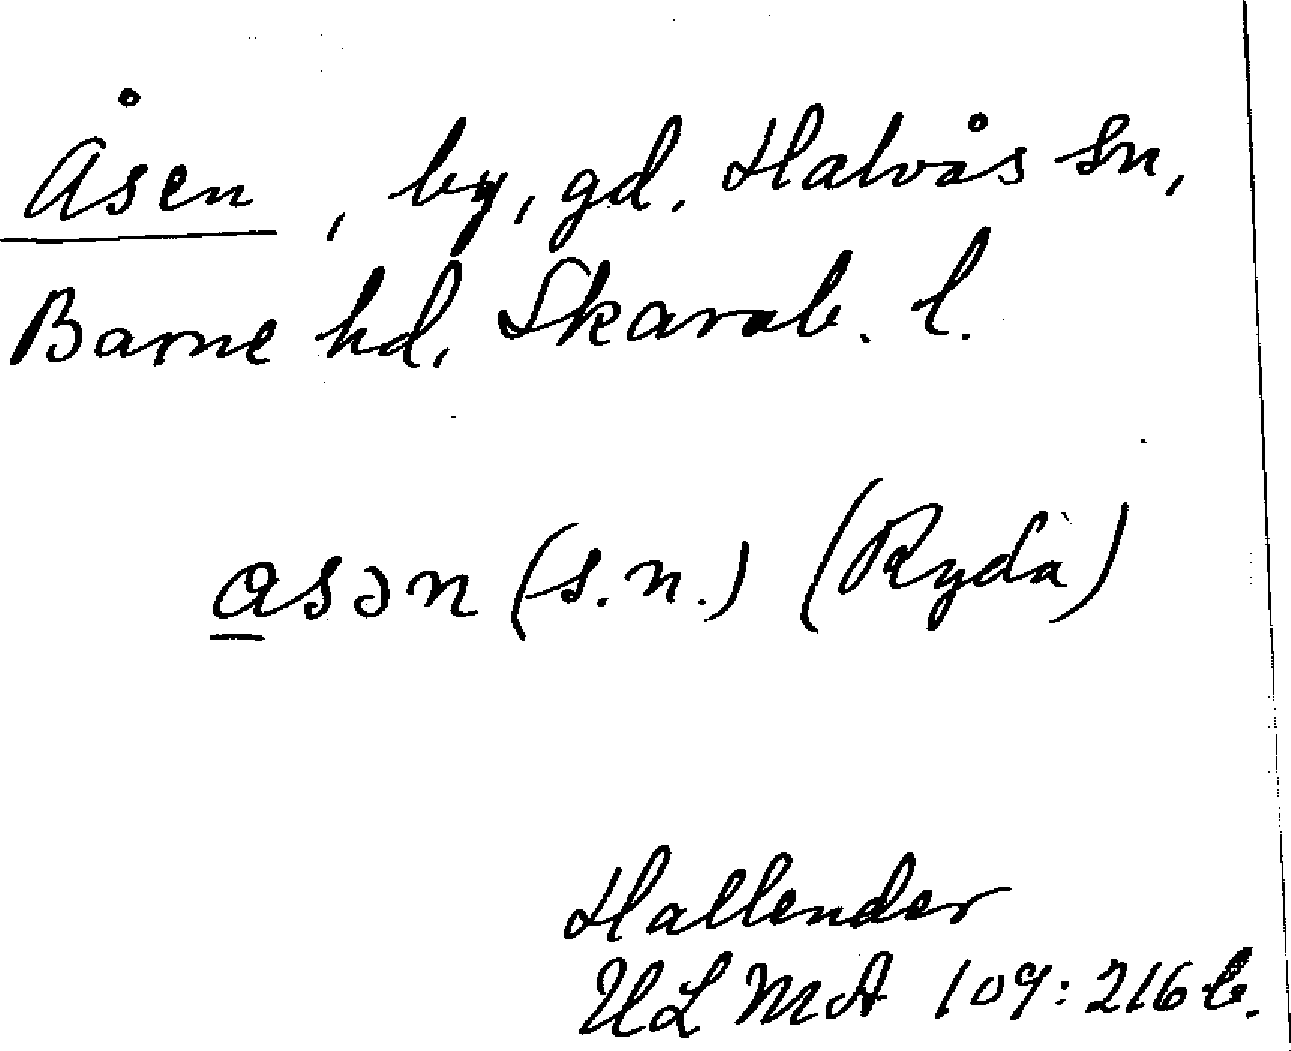 Åsen, by, gd. Halvås sn,
Barne hd, Skarab. l.
asən (s.n.) (Ryda)
Hallender
ULMA 109:216 b.